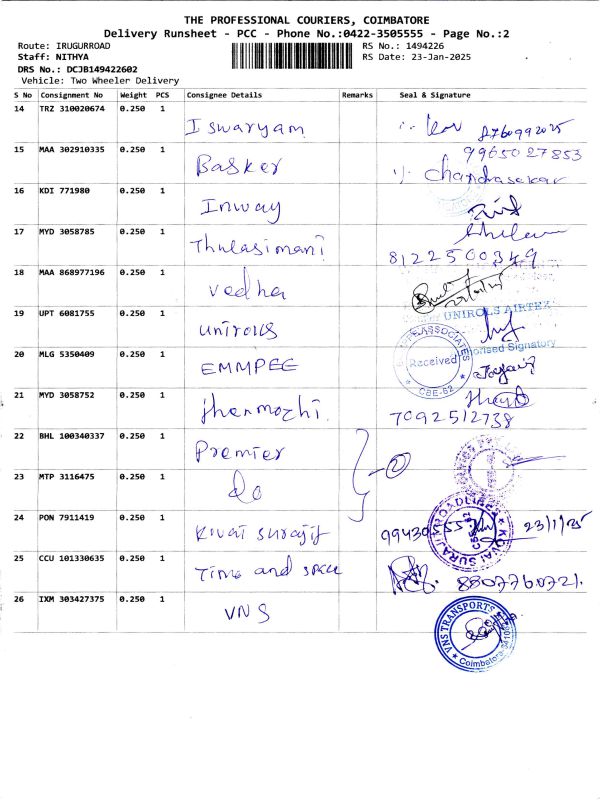 THE PROFESSIONAL COURIERS, COIMBATORE
Delivery Runsheet - PCC - Phone No.:0422-3505555 - Page No.:2
Route: IRUGURROAD RS No.: 1494226
Staff: NITHYA RS Date: 23-Jan-2025
DRS No.: DCJB149422602
Vehicle: Two Wheeler Delivery
S No Consignment No Weight PCS Consignee Details Remarks Seal & Signature
14 TRZ 310020674 0.250 1 Iswaryam 8760992025
15 MAA 302910335 0.250 1 Basker 9965027853
Chandrasekar
16 KDI 771980 0.250 1 Inway
17 MYD 3058785 0.250 1 Thulasimani
8122500349
18 MAA 868977196 0.250 1 Vedha
UNIROLS AIRTEX
19 UPT 6081755 0.250 1 Unirols
Authorised Signatory
20 MLG 5350409 0.250 1 EMMPEE
ASSOCIATES Received CBE-62
21 MYD 3058752 0.250 1 7092512738
22 BHL 100340337 0.250 1 Premier
23 MTP 3116475 0.250 1 do
24 PON 7911419 0.250 1 Kovai Surajit 23/1/25
KOVAI SURAJ
25 CCU 101330635 0.250 1 Time and space 8807760721.
26 IXM 303427375 0.250 1 VNS
VNS TRANSPORTS Coimbatore